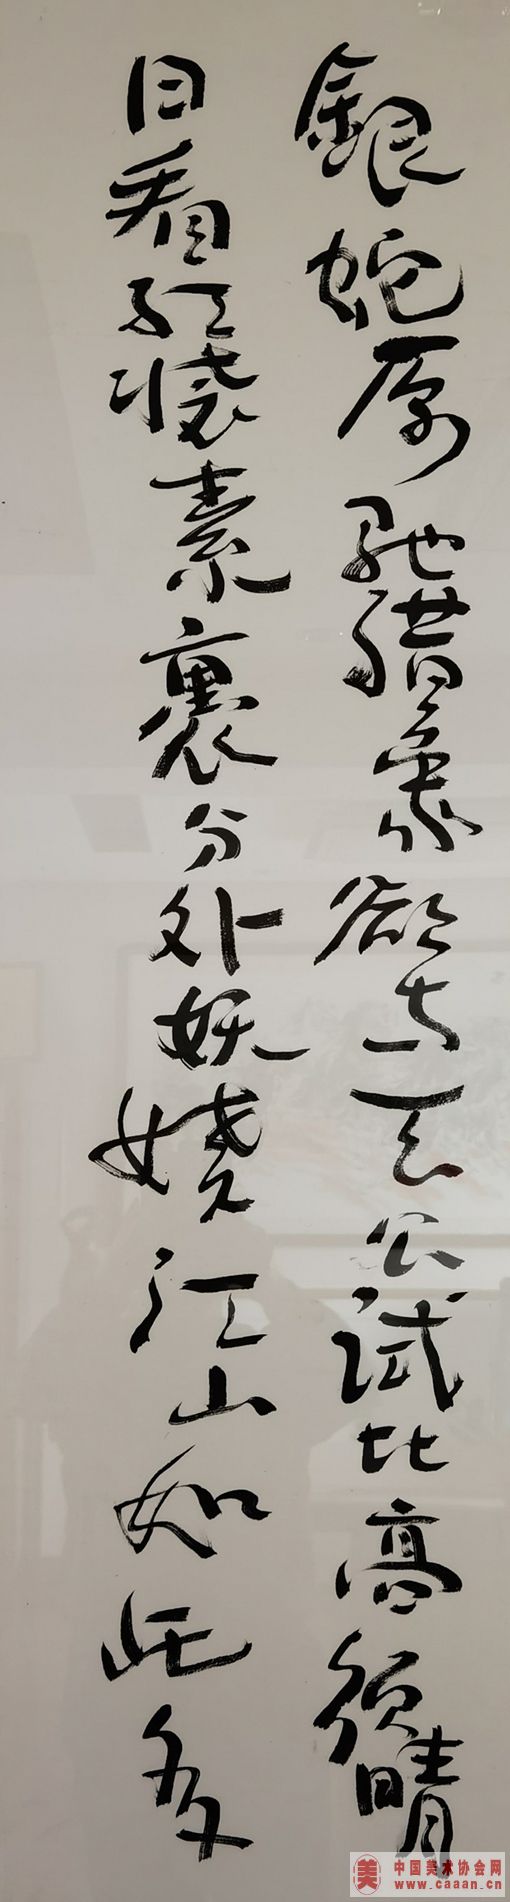 銀蛇原馳腊象欲与天公試比高須晴
日看紅裝素裹分外妖嬈江山如此多
美 中国美术协会网
www.caaan.cn